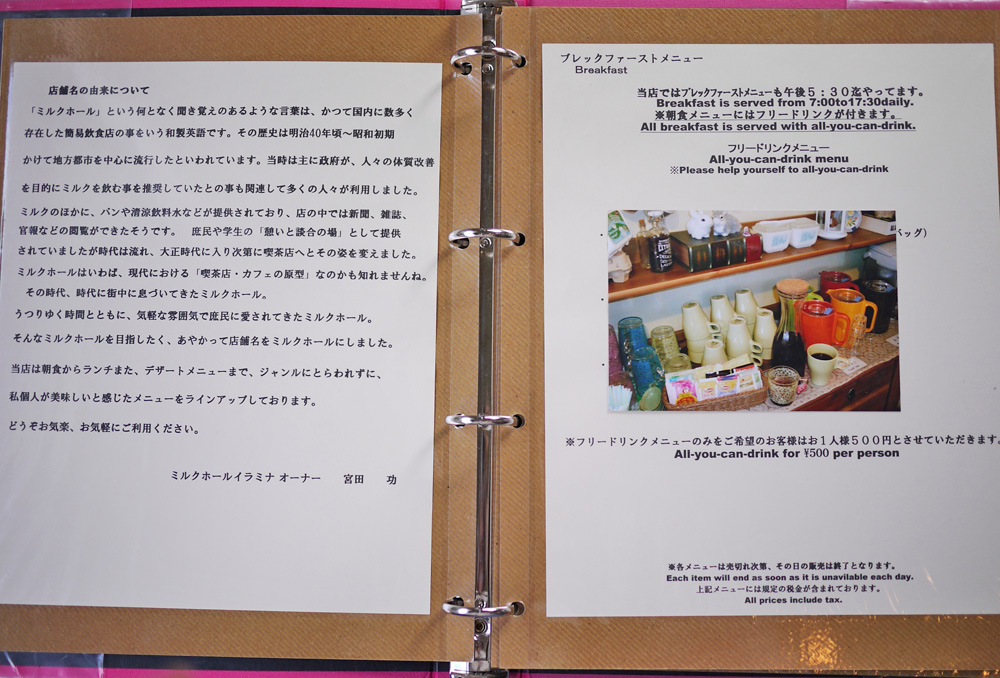 店舗名の由来について
「ミルクホール」という何となく聞き覚えのあるような言葉は、かつて国内に数多く
存在した簡易飲食店の事をいう和製英語です。その歴史は明治40年頃～昭和初期
かけて地方都市を中心に流行したといわれています。当時は主に政府が、人々の体質改善
を目的にミルクを飲む事を推奨していたとの事も関連して多くの人々が利用しました。
ミルクのほかに、パンや清涼飲料水などが提供されており、店の中では新聞、雑誌、
官報などの閲覧ができたそうです。 庶民や学生の「憩いと談合の場」として提供
されていましたが時代は流れ、大正時代に入り次第に喫茶店へとその姿を変えました。
ミルクホールはいわば、現代における「喫茶店・カフェの原型」なのかも知れませんね。
その時代、時代に街中に息づいてきたミルクホール。
うつりゆく時間とともに、気軽な雰囲気で庶民に愛されてきたミルクホール。
そんなミルクホールを目指したく、あやかって店舗名をミルクホールにしました。
当店は朝食からランチまた、デザートメニューまで、ジャンルにとらわれずに、
私個人が美味しいと感じたメニューをラインアップしております。
どうぞお気楽、お気軽にご利用ください。
ミルクホールイラミナ オーナー 宮田 功
ブレックファーストメニュー
Breakfast
当店ではブレックファストメニューも午後５：３０迄やってます。
Breakfast is served from 7:00to17:30daily.
※朝食メニューにはフリードリンクが付きます。
All breakfast is served with all-you-can-drink.
フリードリンクメニュー
All-you-can-drink menu
※Please help yourself to all-you-can-drink
バッグ）
※フリードリンクメニューのみをご希望のお客様はお１人様５００円とさせていただきます。
All-you-can-drink for ¥500 per person
※各メニューは売切れ次第、その日の販売は終了となります。
Each item will end as soon as it is unavilable each day.
上記メニューには規定の税金が含まれております。
All prices include tax.